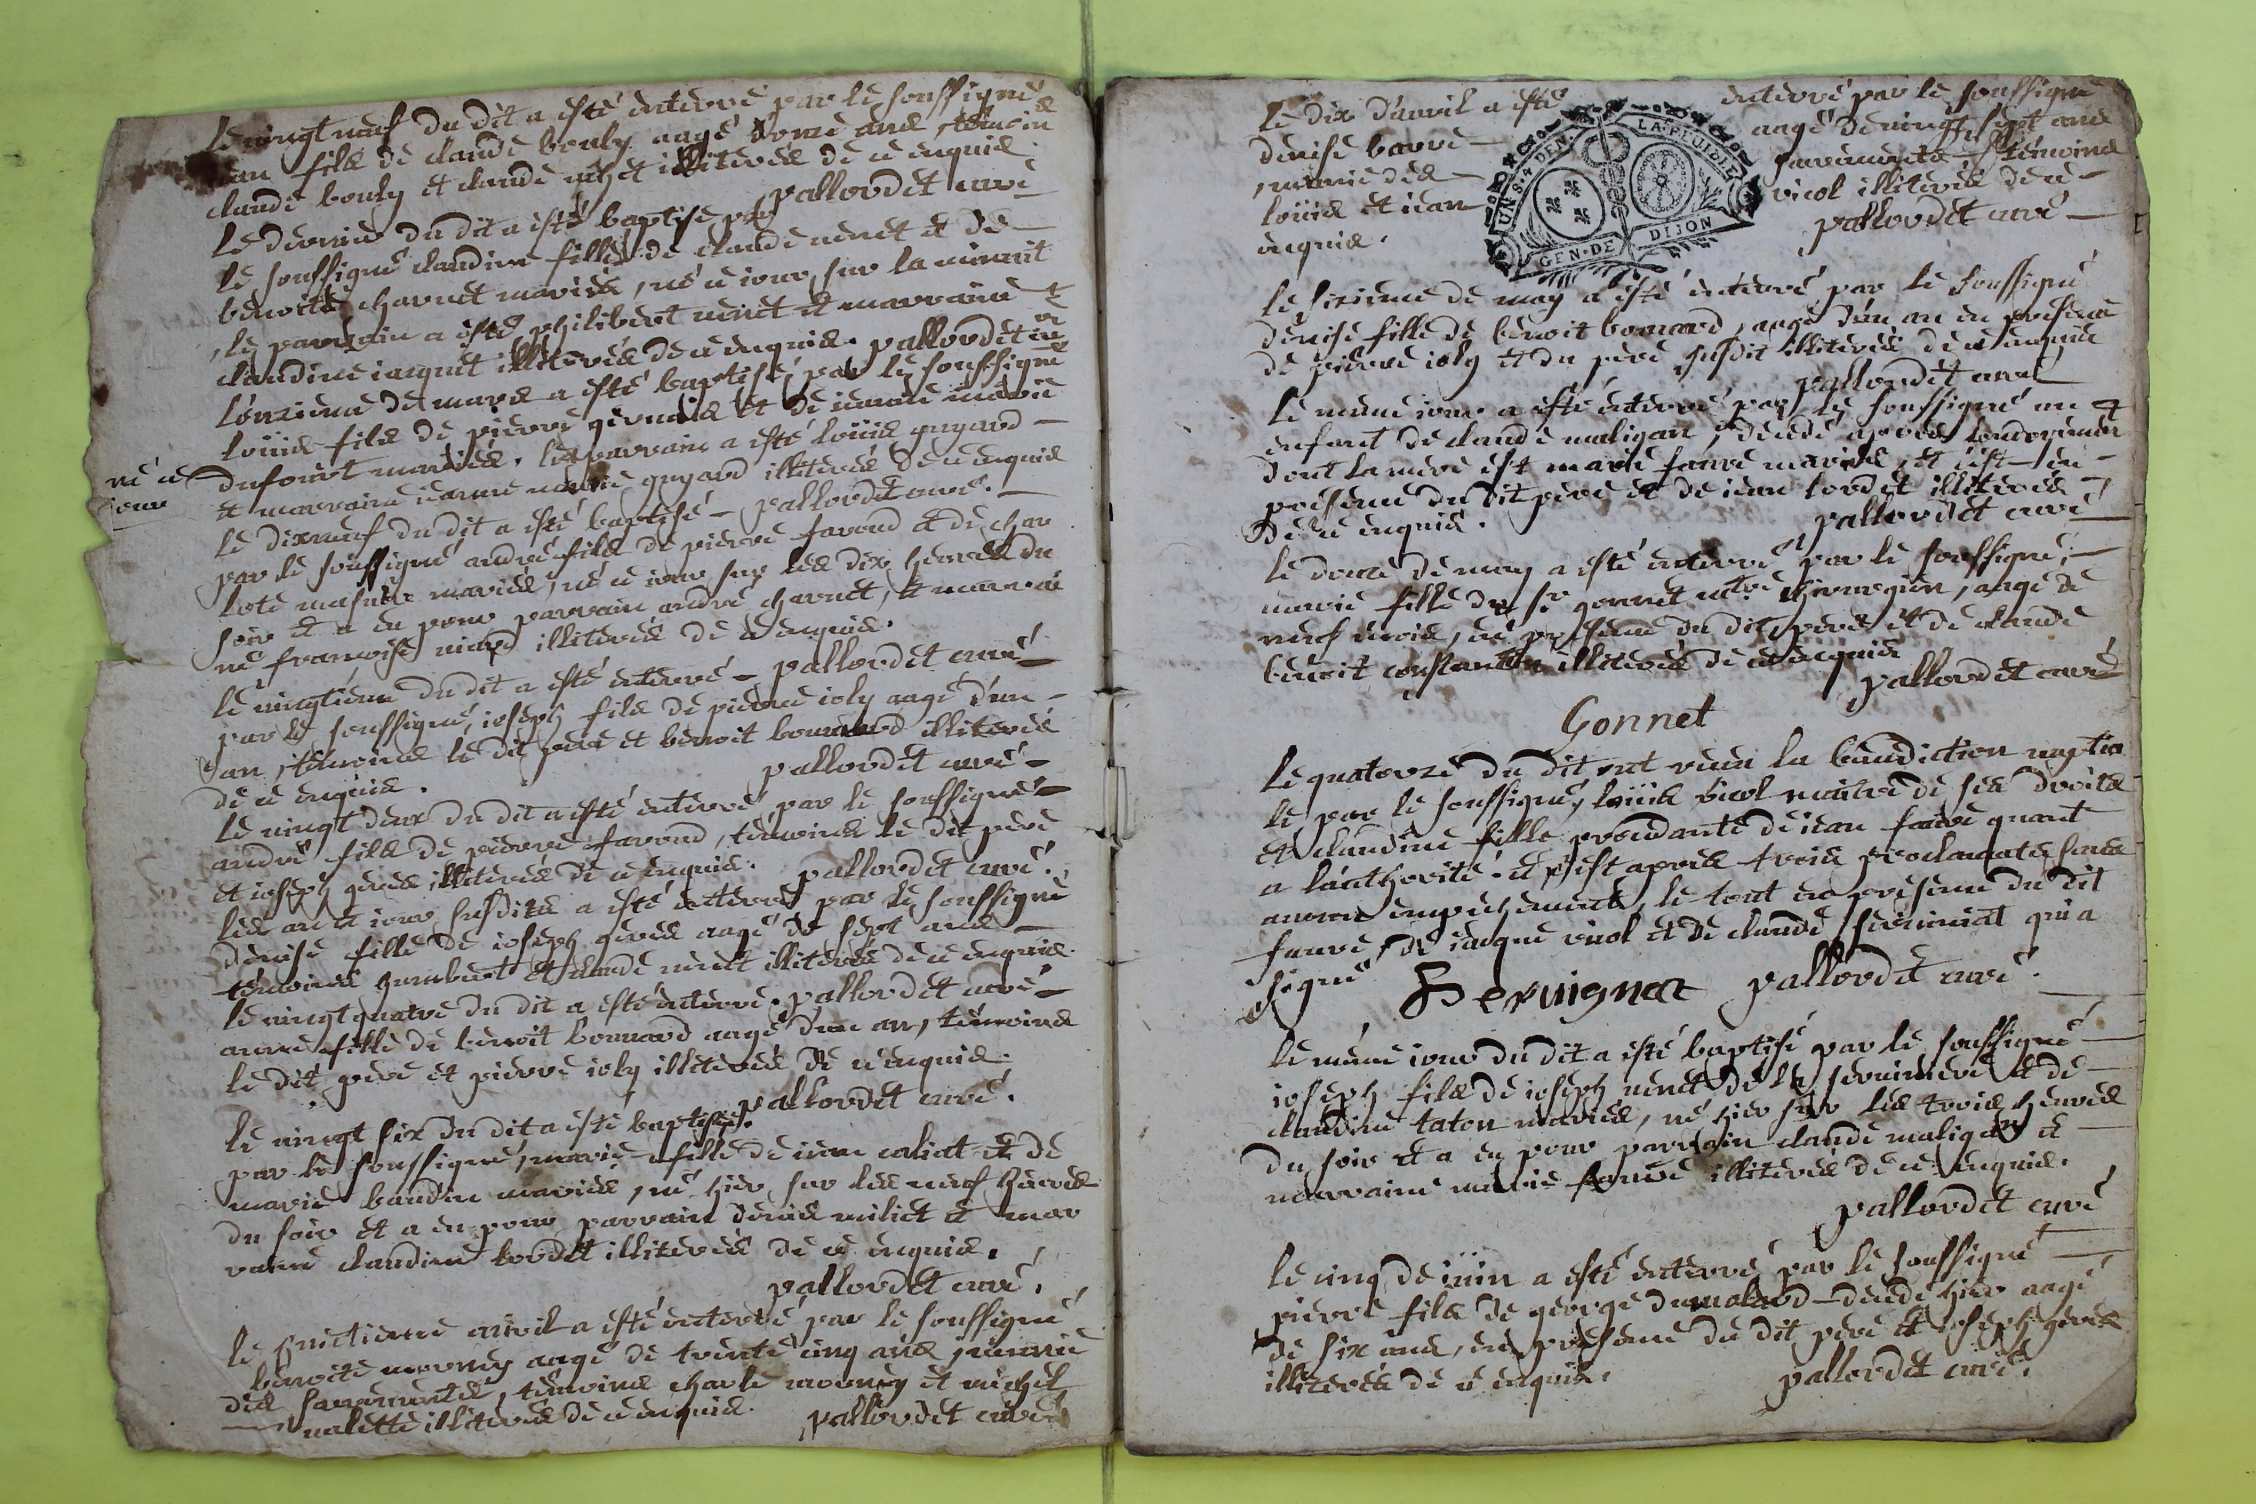 le vingt neuf du dit a esté enterré par le soussigné
fils de claude bouly aagé d'onze ans, témoin
claude bouly et claude illiterés de ce enquis.
pallordet curé
le dernier du dit a esté baptisé par
le soussigné claudine fille de claude nenet et de
benoite charnet mariés, né ce jour sur la minuit
le parrain a esté philibert nenet et marraine
claudine jacquet illiterés de ce enquis. pallordet curé
l'onzieme de mars a esté baptisé par le soussigné
loüis fils de pierre gervais et de jeanne marie
dufourt mariés. le parrain a esté loüis guyard
né ce
jour
et marraine jeanne marie guyard illiterés de ce enquis
le dixneuf du dit a esté baptisé pallordet curé.
par le soussigné andré fils de pierre favoud et de char
lote mariés, né ce jour sur les dix heures du
soir et a eu pour parrain andré charnet, et marrai
ne francoise illiterés de ce enquis.
le vingtieme du dit a esté enterré pallordet curé
par le soussigné, joseph fils de pierre joly aagé d'un
an, témoins le dit père et benoit bonnard illiterés
de ce enquis. pallordet curé
le vingt deux du dit a esté enterré par le soussigné
andré fils de pierre favoud, témoins le dit père
et joseph gevés illiterés de ce enquis. pallordet curé.
les an et jour susdits a esté enterré par le soussigné
denise fille de joseph gevés aagé de sept ans
témoins humbert et claude nenet illiterés de ce enquis.
le vingt quatre du dit a esté enterré. pallordet curé
anne fille de benoit bonnard aagé d'un an, témoins
le dit père et pierre joly illiterés de ce enquis.
pallordet curé.
le vingt six du dit a esté baptisé.
par le soussigné, marie fille de jean caliat et de
marie baudin mariés, né hier sur les neuf heures
du soir et a eu pour parrain denis miliet et mar
raine claudine bordet illiterés de ce enquis.
pallordet curé.
le huictieme avril a esté enterré par le soussigné
benoite morney aagé de trente cinq ans, munie
des sacrements, témoins charle morney et michel
valette illiterés de ce enquis. pallordet curé
le dix d'avril a esté enterré par le soussigné
denise barré aagé de vingt sept ans
munie des sacrements témoins
loüis et jean vicol illiterés de ce
enquis. pallordet curé
UN S. 4 DEN. LA FEUILLE
GEN. DE DIJON
le sixieme de may a esté enterré par le soussigné
denise fille de benoit bonnard, aagé d'un an en presence
de pierre joly et du père susdit illiterés de ce enquis
pallordet curé
le même jour a esté enterré par le soussigné un
enfant de claude maligan, décédé après l'ondoiement
dont la mère est marie faure mariés, et c'est en
présence du dit père et de jean bordet illiterés
de ce enquis. pallordet curé
le douze de may a esté enterré par le soussigné,
marie fille du sr. gonnet mtre chirurgien, aagé de
neuf mois, en présence du dit père et de claude
benoit constantin illiterés de ce enquis
pallordet curé
Gonnet
le quatorze du dit ont receu la bénédiction nuptia
le par le soussigné, loüis vicol maître de ses droits
et claudine fille procedante de jean faure quant
a l'authorité et c'est après trois proclamats sans
aucun empéchement, le tout en présence du dit
faure, de jacque vicol et de claude serviniat qui a
signé Servignat pallordet curé.
le même jour du dit a esté baptisé par le soussigné
joseph fils de joseph nenet de la serviniere et de
claudine taton mariés, né hier sur les trois heures
du soir et a eu pour parrain claude maligan et
marraine marie faure illiterés de ce enquis.
pallordet curé
le cinq de juin a esté enterré par le soussigné
pierre fils de george dumolard décédé hier aagé
de six ans, en présence du dit père et joseph gevés
illiterés de ce enquis. pallordet curé.